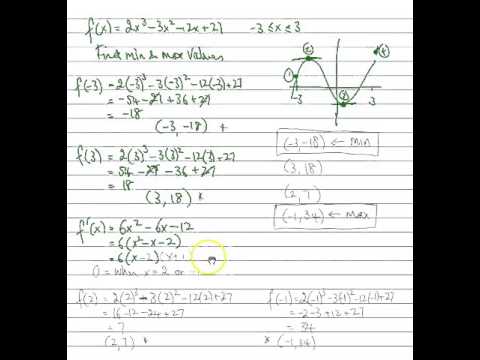 f(x) = 2x³ - 3x² - 12x + 27     -3 ≤ x ≤ 3
Find min & max Values
f(-3) = 2(-3)³ - 3(-3)² - 12(-3) + 27
= -54 - 27 + 36 + 27
= -18
(-3, -18) *
f(3) = 2(3)³ - 3(3)² - 12(3) + 27
= 54 - 27 - 36 + 27
= 18
(3, 18) *
f'(x) = 6x² - 6x - 12
= 6(x² - x - 2)
= 6(x - 2)(x + 1
0 = when x = 2 or -1
f(2) = 2(2)³ - 3(2)² - 12(2) + 27
= 16 - 12 - 24 + 27
= 7
(2, 7) *
1
2
3
4
-3
3
(-3, -18) ← min
(3, 18)
(2, 7)
(-1, 34) ← max
f(-1) = 2(-1)³ - 3(-1)² - 12(-1) + 27
= -2 - 3 + 12 + 27
= 34
* (-1, 34)